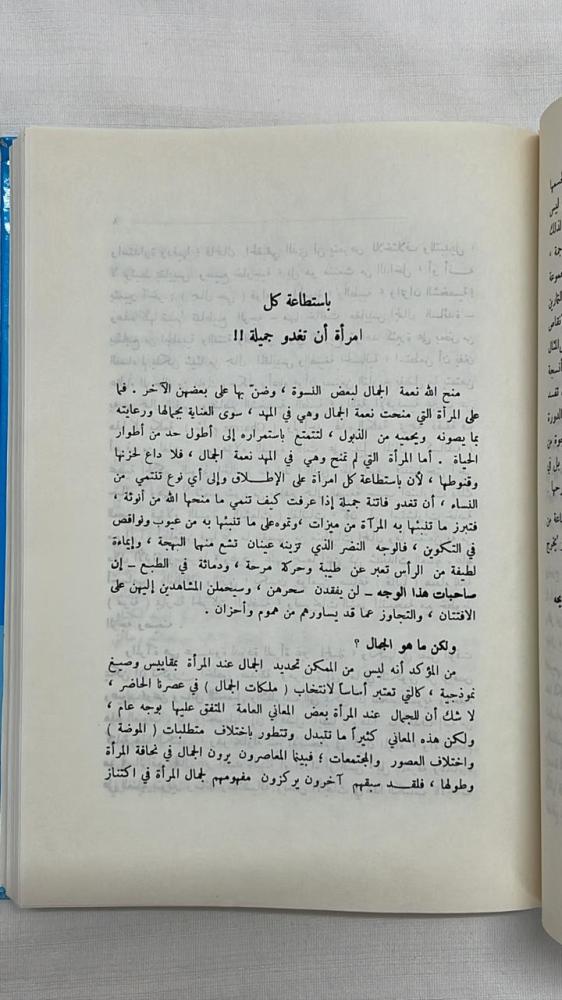 باستطاعة كل
امرأة أن تغدو جميلة !!
منح الله نعمة الجمال لبعض النسوة ، وضنّ بها على بعضهن الآخر . فما
على المرأة التي منحت نعمة الجمال وهي في المهد ، سوى العناية بجمالها ورعايته
بما يصونه ويحميه من الذبول ، لتتمتع باستمراره إلى أطول حد من أطوار
الحياة . أما المرأة التي لم تمنح وهي في المهد نعمة الجمال ، فلا داع لحزنها
وقنوطها ، لأن باستطاعة كل امرأة على الإطلاق وإلى أي نوع تنتمي من
النساء ، أن تغدو فاتنة جميلة إذا عرفت كيف تنمي ما منحها الله من أنوثة ،
فتبرز ما تنبئها به المرآة من ميزات ، وتموه على ما تنبئها به من عيوب ونواقص
في التكوين ، فالوجه النضر الذي تزينه عينان تشع منهما البهجة ، وإيماءة
لطيفة من الرأس تعبر عن طيبة وحركة مرحة ، ودماثة في الطبع – إن
صاحبات هذا الوجه – لن يفقدن سحرهن ، وسيحملن المشاهدين إليهن على
الافتتان ، والتجاوز عما قد يساورهم من هموم وأحزان .
ولكن ما هو الجمال ؟
من المؤكد أنه ليس من الممكن تحديد الجمال عند المرأة بمقاييس وصيغ
نموذجية ، كالتي تعتبر أساساً لانتخاب ( ملكات الجمال ) في عصرنا الحاضر ،
لا شك أن للجمال عند المرأة بعض المعاني العامة المتفق عليها بوجه عام ،
ولكن هذه المعاني كثيراً ما تتبدل وتتطور باختلاف متطلبات ( الموضة )
واختلاف العصور والمجتمعات ؛ فبينما المعاصرون يرون الجمال في نحافة المرأة
وطولها ، فلقد سبقهم آخرون يركزون مفهومهم لجمال المرأة في اكتناز